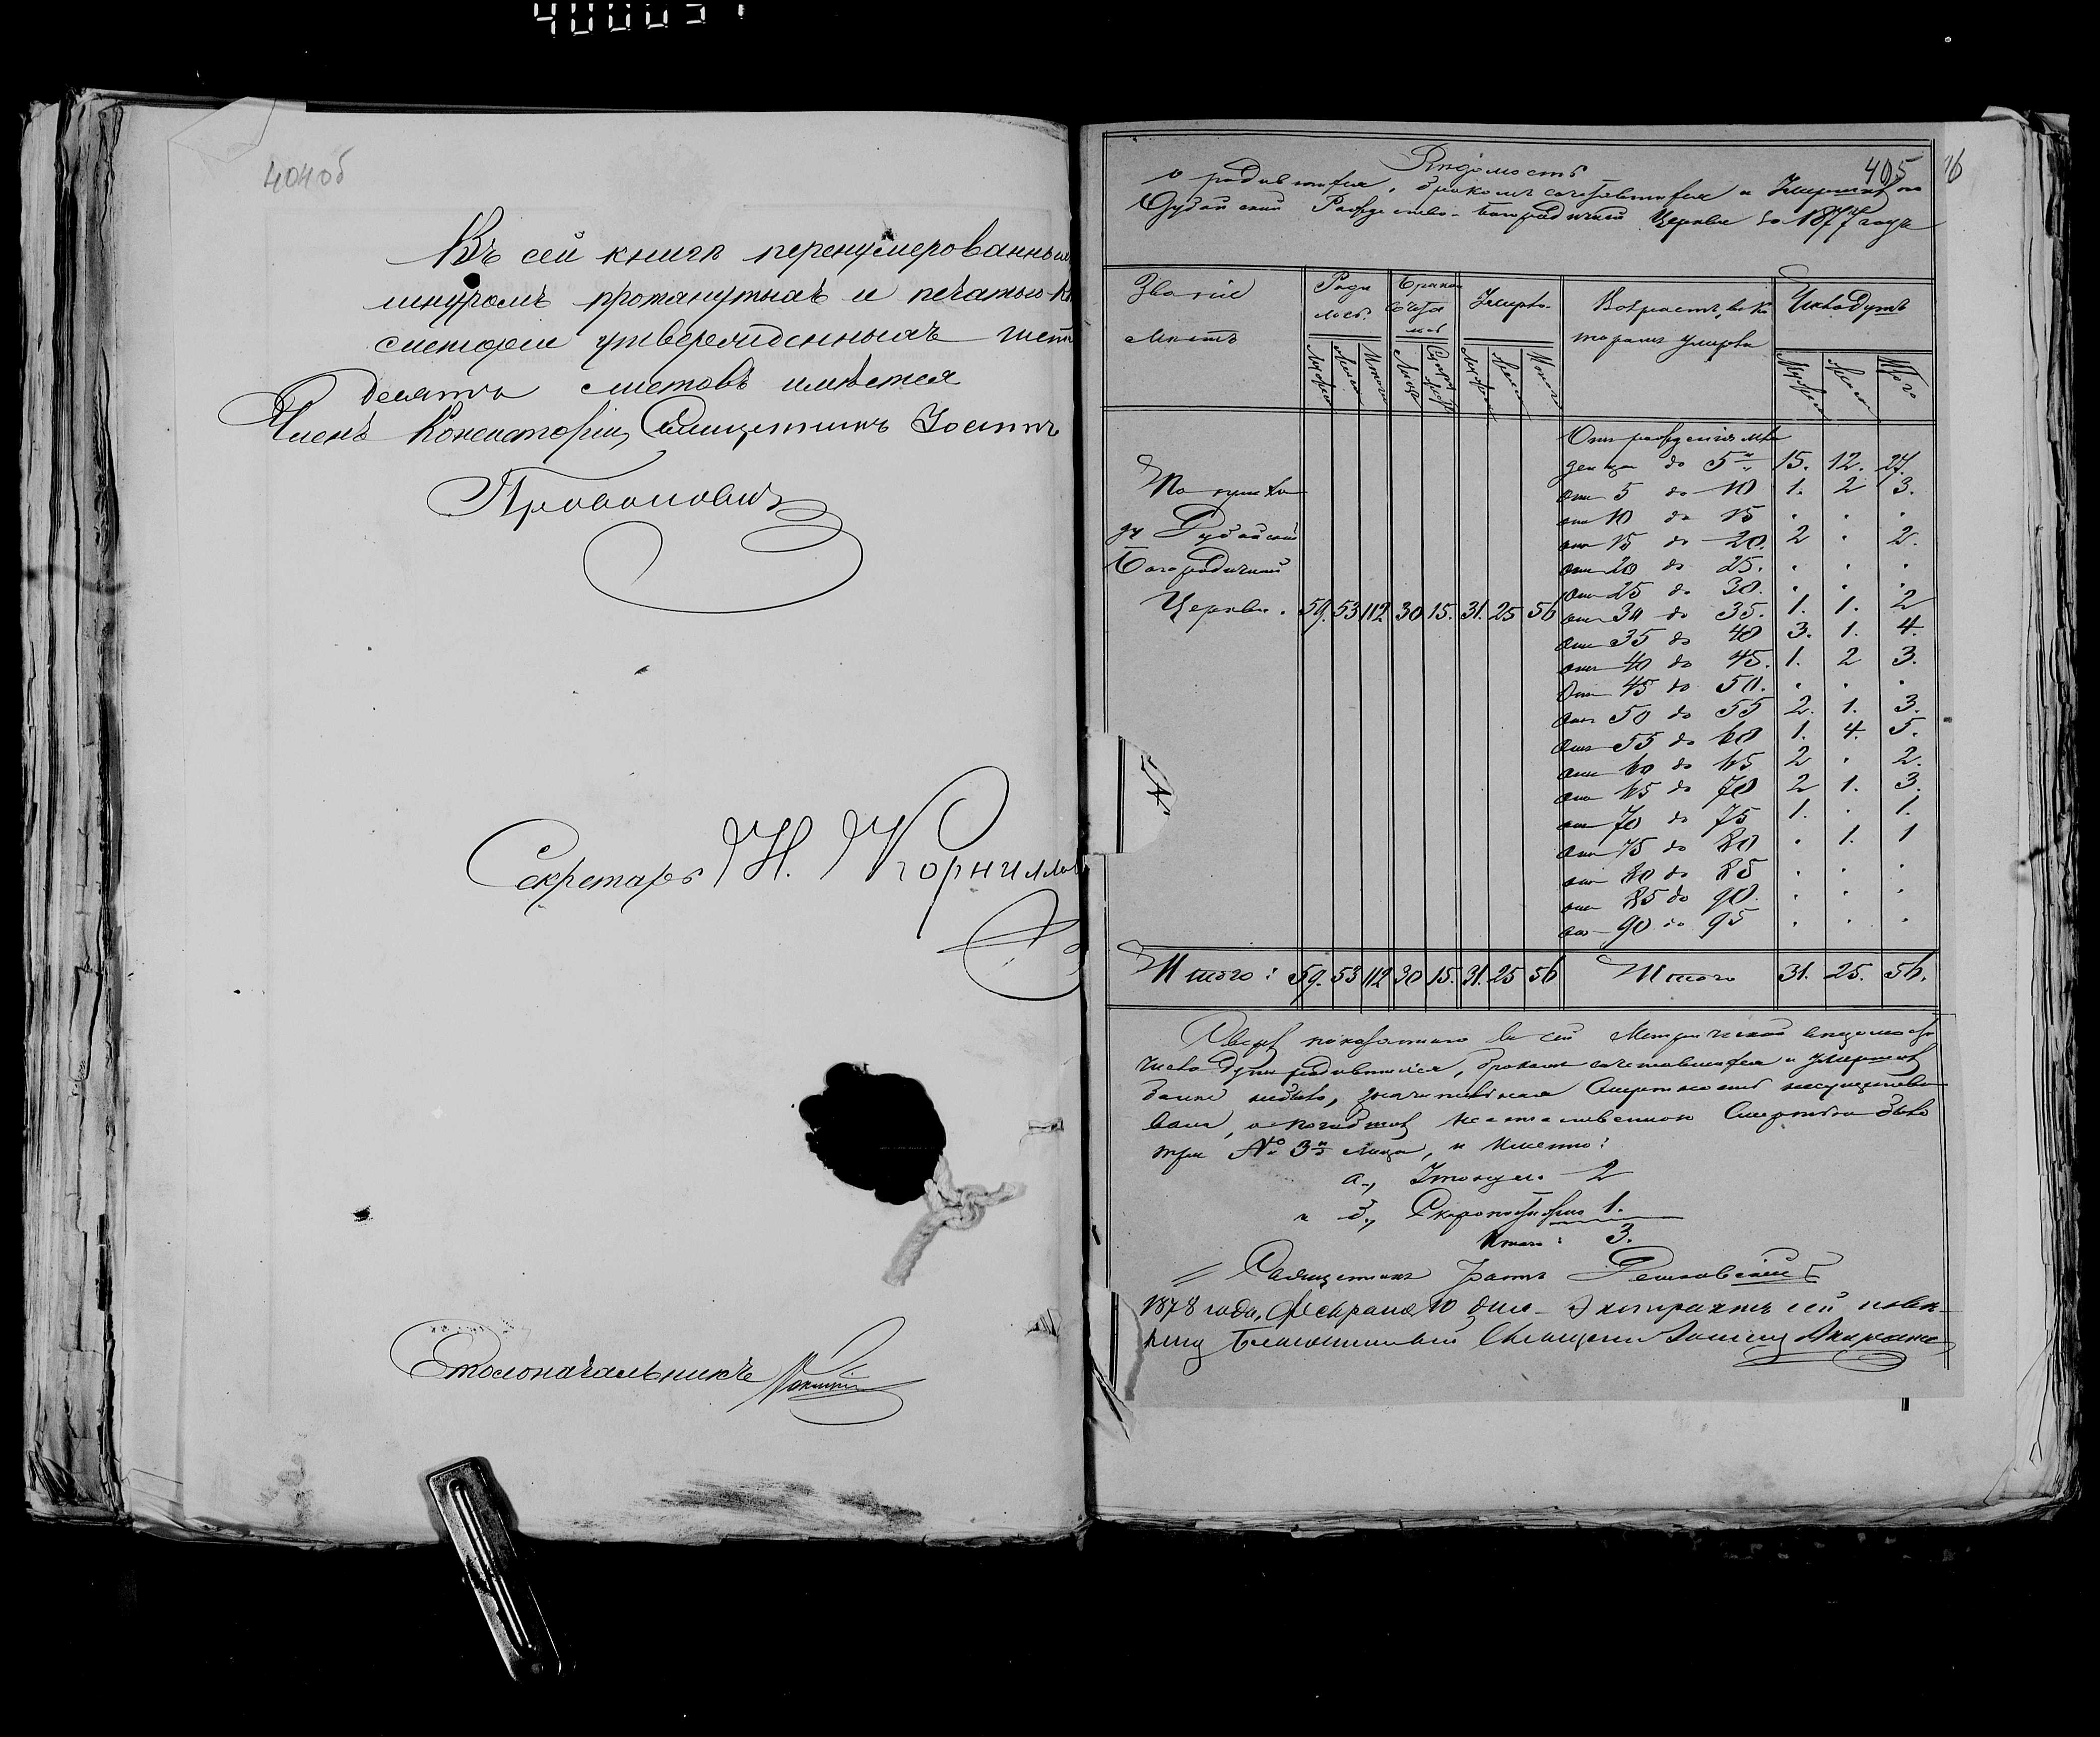 404об
Въ сей книгѣ перенумерованныхъ
шнуромъ протянутыхъ и печатью
систоріи утвержденныхъ шесть
десятъ листовъ имѣется
Членъ Консисторіи, Священникъ Іоаннъ
Секретарь Н. Корнилло
Столоначальникъ
405
Вѣдомость
о родившихся, бракомъ сочетавшихся и умершихъ по
Рождество-Богородичной Церкви за 1877 годъ
Званіе мѣстъ
Роди лось
Браком Сочета лось
Умерло
Возрастъ, въ ко торомъ умерли
Число душъ
Отъ рожденія мла
денца до 5 15. 12. 27.
отъ 5 до 10 1. 2 3.
отъ 10 до 15 . . .
отъ 15 до 20. 2 . 2.
отъ 20 до 25. . . .
отъ 25 до 30. . . .
отъ 30 до 35. 1. 1. 2
отъ 35 до 40 3. 1. 4.
отъ 40 до 45. 1. 2 3.
отъ 45 до 50. . . .
отъ 50 до 55 2. 1. 3.
отъ 55 до 60 1. 4. 5.
отъ 60 до 65 2 . 2.
отъ 65 до 70 2 1. 3.
отъ 70 до 75 1. . 1.
отъ 75 до 80 . 1. 1
отъ 80 до 85 . . .
отъ 85 до 90. . . .
отъ 90 до 95 . . .
По
Богородичной
Церкви. 59. 53 112 30 15. 31. 25 56
Итого: 59. 53 112 30 15. 31. 25 56 Итого 31. 25. 56.
Сверхъ показаннаго въ сей Метрической вѣдомости
число душъ родившихся, бракомъ сочетавшихся и умершихъ
болѣе небыло, значительная смертность несуществовала
а погибшихъ неестественною смертью было
три № 3 лица, и именно:
а., Утонули 2
и б., Скоропостижно 1.
Итого: 3.
Священникъ
1878 года, февраля 10 дня
Благочинный Священникъ